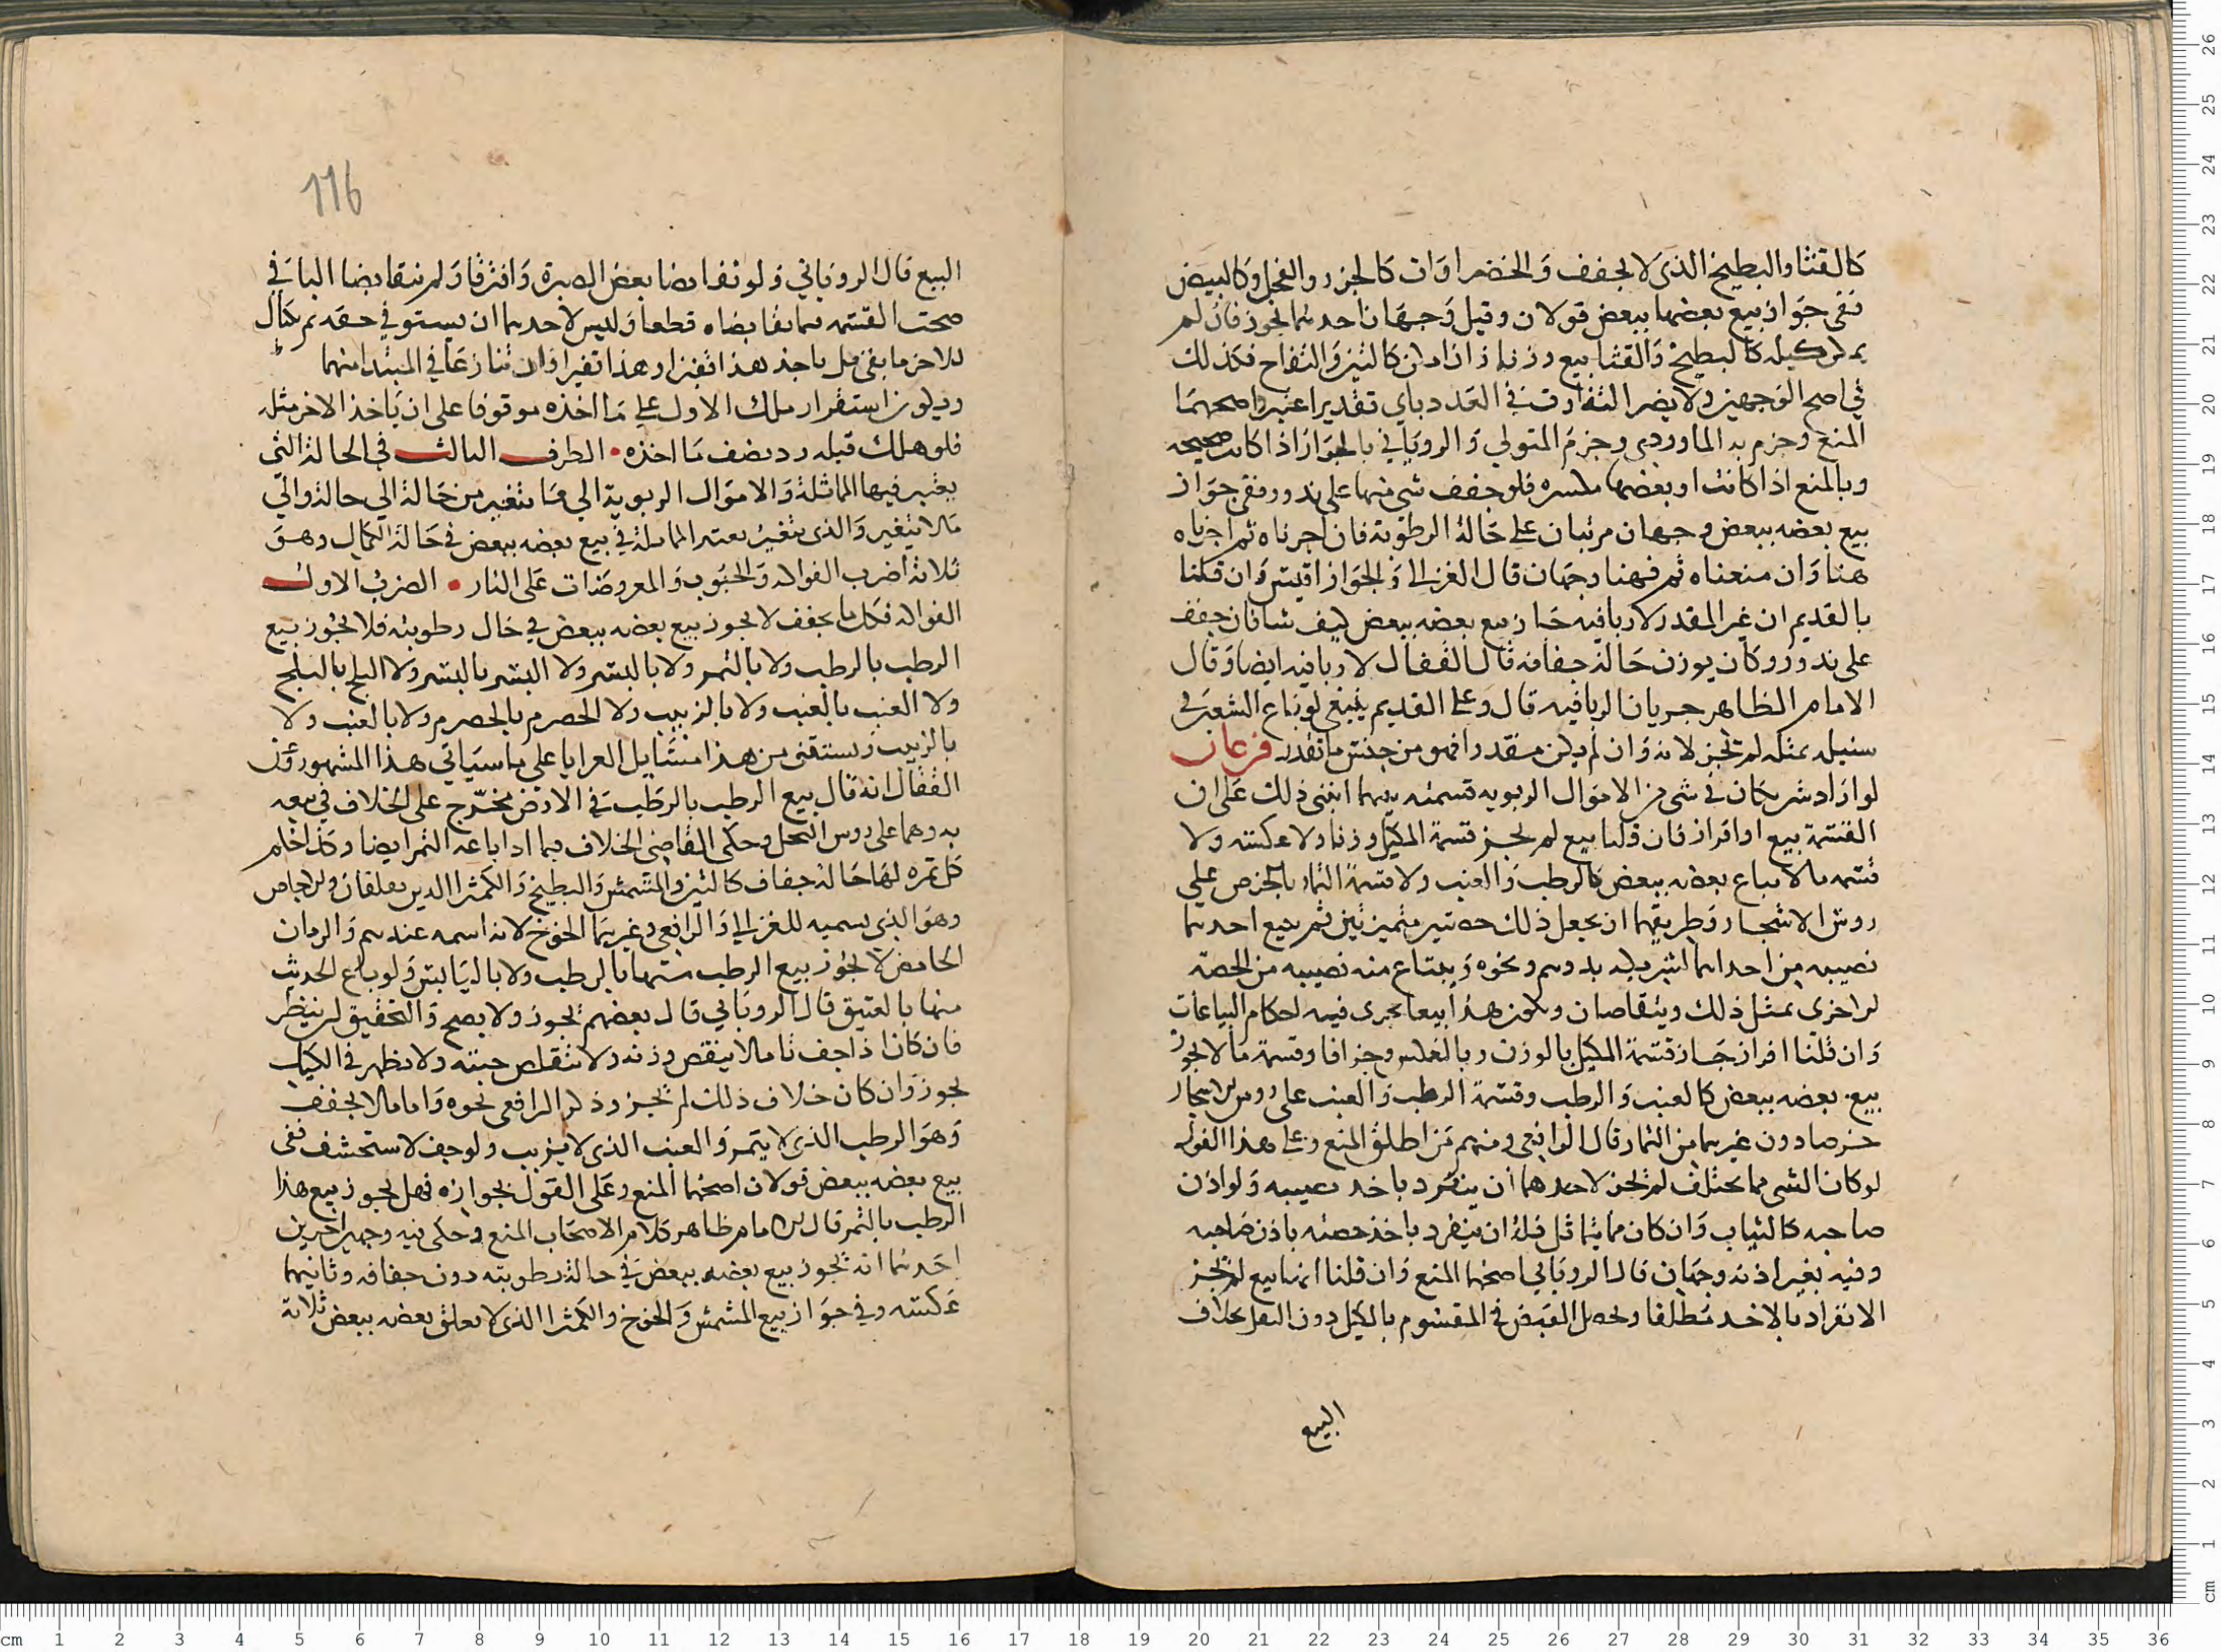 كالقثا والبطيخ الذى لا يجفف والخضراوات كالجزر والفجل وكالبيض
ففى جواز بيع بعضها ببعض قولان وقيل وجهان احدهما يجوز فان لم
يمكن كيله كالبطيخ والقثا بيع وزنا وان امكن كالتين والتفاح فكذلك
في اصح الوجهين ولا يضر التفاوت في العدد باي تقدير اعتبر واصحهما
المنع وجزم به الماوردى وجزم المتولي والروياني بالجواز اذا كانت صحيحه
وبالمنع اذا كانت او بعضها مكسره فلو جفف شى منها على ندور ففى جواز
بيع بعضه ببعض وجهان مرتبان على حالة الرطوبة فان اجزناه ثم اجزناه
هنا وان منعناه ثم فهنا وجهان قال الغزالي والجواز اقيس وان قلنا
بالقديم ان غير المقدر لا ربا فيه جاز بيع بعضه ببعض كيف شا فان جفف
على ندور وكان يوزن حالة جفافه قال القفال لا ربا فيه ايضا وقال
الامام الظاهر جريان الربا فيه قال وعلى القديم ينبغي لو باع الشعير في
سنبله بمثله لم يجز لانه وان لم يكن مقدرا فهو من جنس ما تقدر فرعان
لو اراد شريكان في شى من الاموال الربويه قسمته بينهما انبنى ذلك على ان
القسمة بيع او افراز فان قلنا بيع لم يجز قسمة المكيل وزنا ولا عكسه ولا
قسمه ما لا يباع بعضه ببعض كالرطب والعنب ولا قسمة الثمار بالخرص على
روس الاشجار وطريقهما ان يجعل ذلك حصتين متميزتين ثم يبيع احدهما
نصيبه من احداهما لشريكه بدرهم ونحوه ويبتاع منه نصيبه من الحصة
الاخرى بمثل ذلك ويتقاصان ويكون هذا بيعا يجرى فيه احكام البياعات
وان قلنا افراز جاز قسمة المكيل بالوزن وبالعكس وجزافا وقسمة ما لا يجوز
بيع بعضه ببعض كالعنب والرطب وقسمة الرطب والعنب على روس الاشجار
خرصا دون غيرهما من الثمار قال الرافعى ومنهم من اطلق المنع وعلى هذا القول
لو كان الشى مما يختلف لم يجز لاحدهما ان ينفرد باخذ نصيبه ولو اذن
صاحبه كالثياب وان كان مما يتماثل فله ان ينفرد باخذ حصته باذن صاحبه
وفيه بغير اذنه وجهان قال الروياني اصحهما المنع وان قلنا انها بيع لم يجز
الانفراد بالاخذ مطلقا ويحصل القبض في المقسوم بالكيل دون النقل بخلاف
البيع
116
البيع قال الروياني ولو تقابضا بعض الصبرة وافترقا ولم يتقابضا الباقي
صحت القسمه فيما تقابضاه قطعا وليس لاحدهما ان يستوفي حقه ثم يكتال
للاخر ما بقى بل ياخذ هذا قفيزا وهذا قفيزا وان تنازعا في المبتدا منهما
ويكون استقرار ملك الاول على ما اخذه موقوفا على ان ياخذ الاخر مثله
فلو هلك قبله رد نصف ما اخذه • الطرف الثالث في الحالة التى
يعتبر فيها المماثلة والاموال الربوية الي ما يتغير من حالة الي حالة والي
ما لا يتغير والذى يتغير يعتبر المماثلة في بيع بعضه ببعض في حالة الكمال وهو
ثلاثة اضرب الفواكه والحبوب والمعروضات على النار • الضرب الاول
الفواكه فكل ما يجفف لا يجوز بيع بعضه ببعض في حال رطوبته فلا يجوز بيع
الرطب بالرطب ولا بالتمر ولا بالبسر ولا البسر بالبسر ولا البلح بالبلح
ولا العنب بالعنب ولا بالزبيب ولا الحصرم بالحصرم ولا بالعنب ولا
بالزبيب ويستثنى من هذا مسايل العرايا على ما سياتي هذا المشهور وعن
القفال انه قال بيع الرطب بالرطب في الارض مخرج على الخلاف في بيعه
به وهما على روس النخل وحكى القاضى الخلاف فيما اذا باعه التمر ايضا وكذا حكم
كل ثمره لها حالة جفاف كالتين والمشمش والبطيخ والكمثرا الذين يفلقان والاجاص
وهو الذى يسميه الغزالي والرافعي وغيرهما الخوخ لانه اسمه عندهم والرمان
الحامض لا يجوز بيع الرطب منها بالرطب ولا باليابس ولو باع الحديث
منها بالعتيق قال الروياني قال بعضهم يجوز ولا يصح والتحقيق ان ينظر
فان كان اذا جف تاما لا ينقص وزنه ولا تتقلص حبته ولا يظهر في الكيل
يجوز وان كان خلاف ذلك لم يجز وذكر الرافعى نحوه واما ما لا يجفف
وهو الرطب الذى لا يتمر والعنب الذى لا يزبب ولو جف لاستحشف ففى
بيع بعضه ببعض قولان اصحهما المنع وعلى القول بجوازه فهل يجوز بيع هذا
الرطب بالتمر قال الامام ظاهر كلام الاصحاب المنع وحكى فيه وجهين اخرين
احدهما انه يجوز بيع بعضه ببعض في حالة رطوبته دون جفافه وثانيهما
عكسه وفي جواز بيع المشمش والخوخ والكمثرا الذى لا يعلق بعضه ببعض ثلاثة